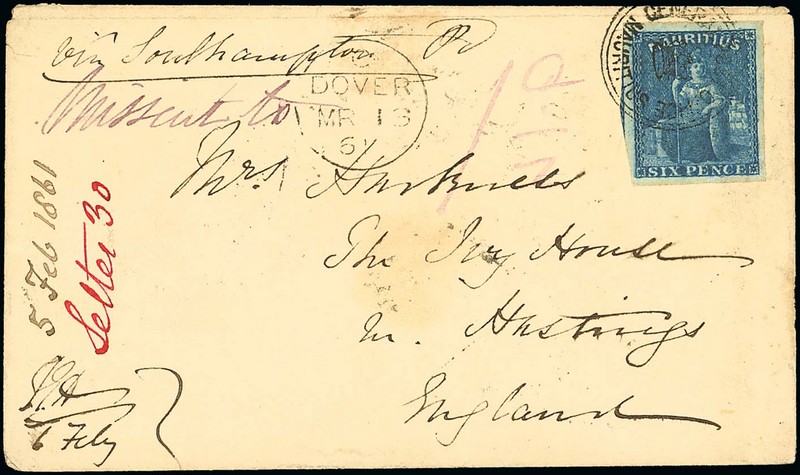 Via Southampton
Missent to
DOVER
MR 13
61
MAURITIUS
SIX PENCE
Mrs. Harkness
The Ivy House
nr. Hastings
England
5 Feb 1861
Letter 30
6 Feby